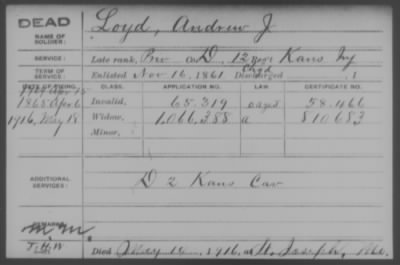 DEAD
NAME OF SOLDIER: Loyd, Andrew J
SERVICE: Late rank, Priv Co D, 12 Reg't Kans Inf
TERM OF SERVICE: Enlisted Nov 16, 1861. Discharged , 1
DATE OF FILING. CLASS. APPLICATION NO. LAW. CERTIFICATE NO.
1865 Apr 6 Invalid, 65,319 58,466
1916, May 18 Widow, 1,066,388 a 810,683
Minor,
ADDITIONAL SERVICES: D 2 Kans Cav
REMARKS:
M.M.
J.H.W. Died May 1916, at St. Joseph, Mo.